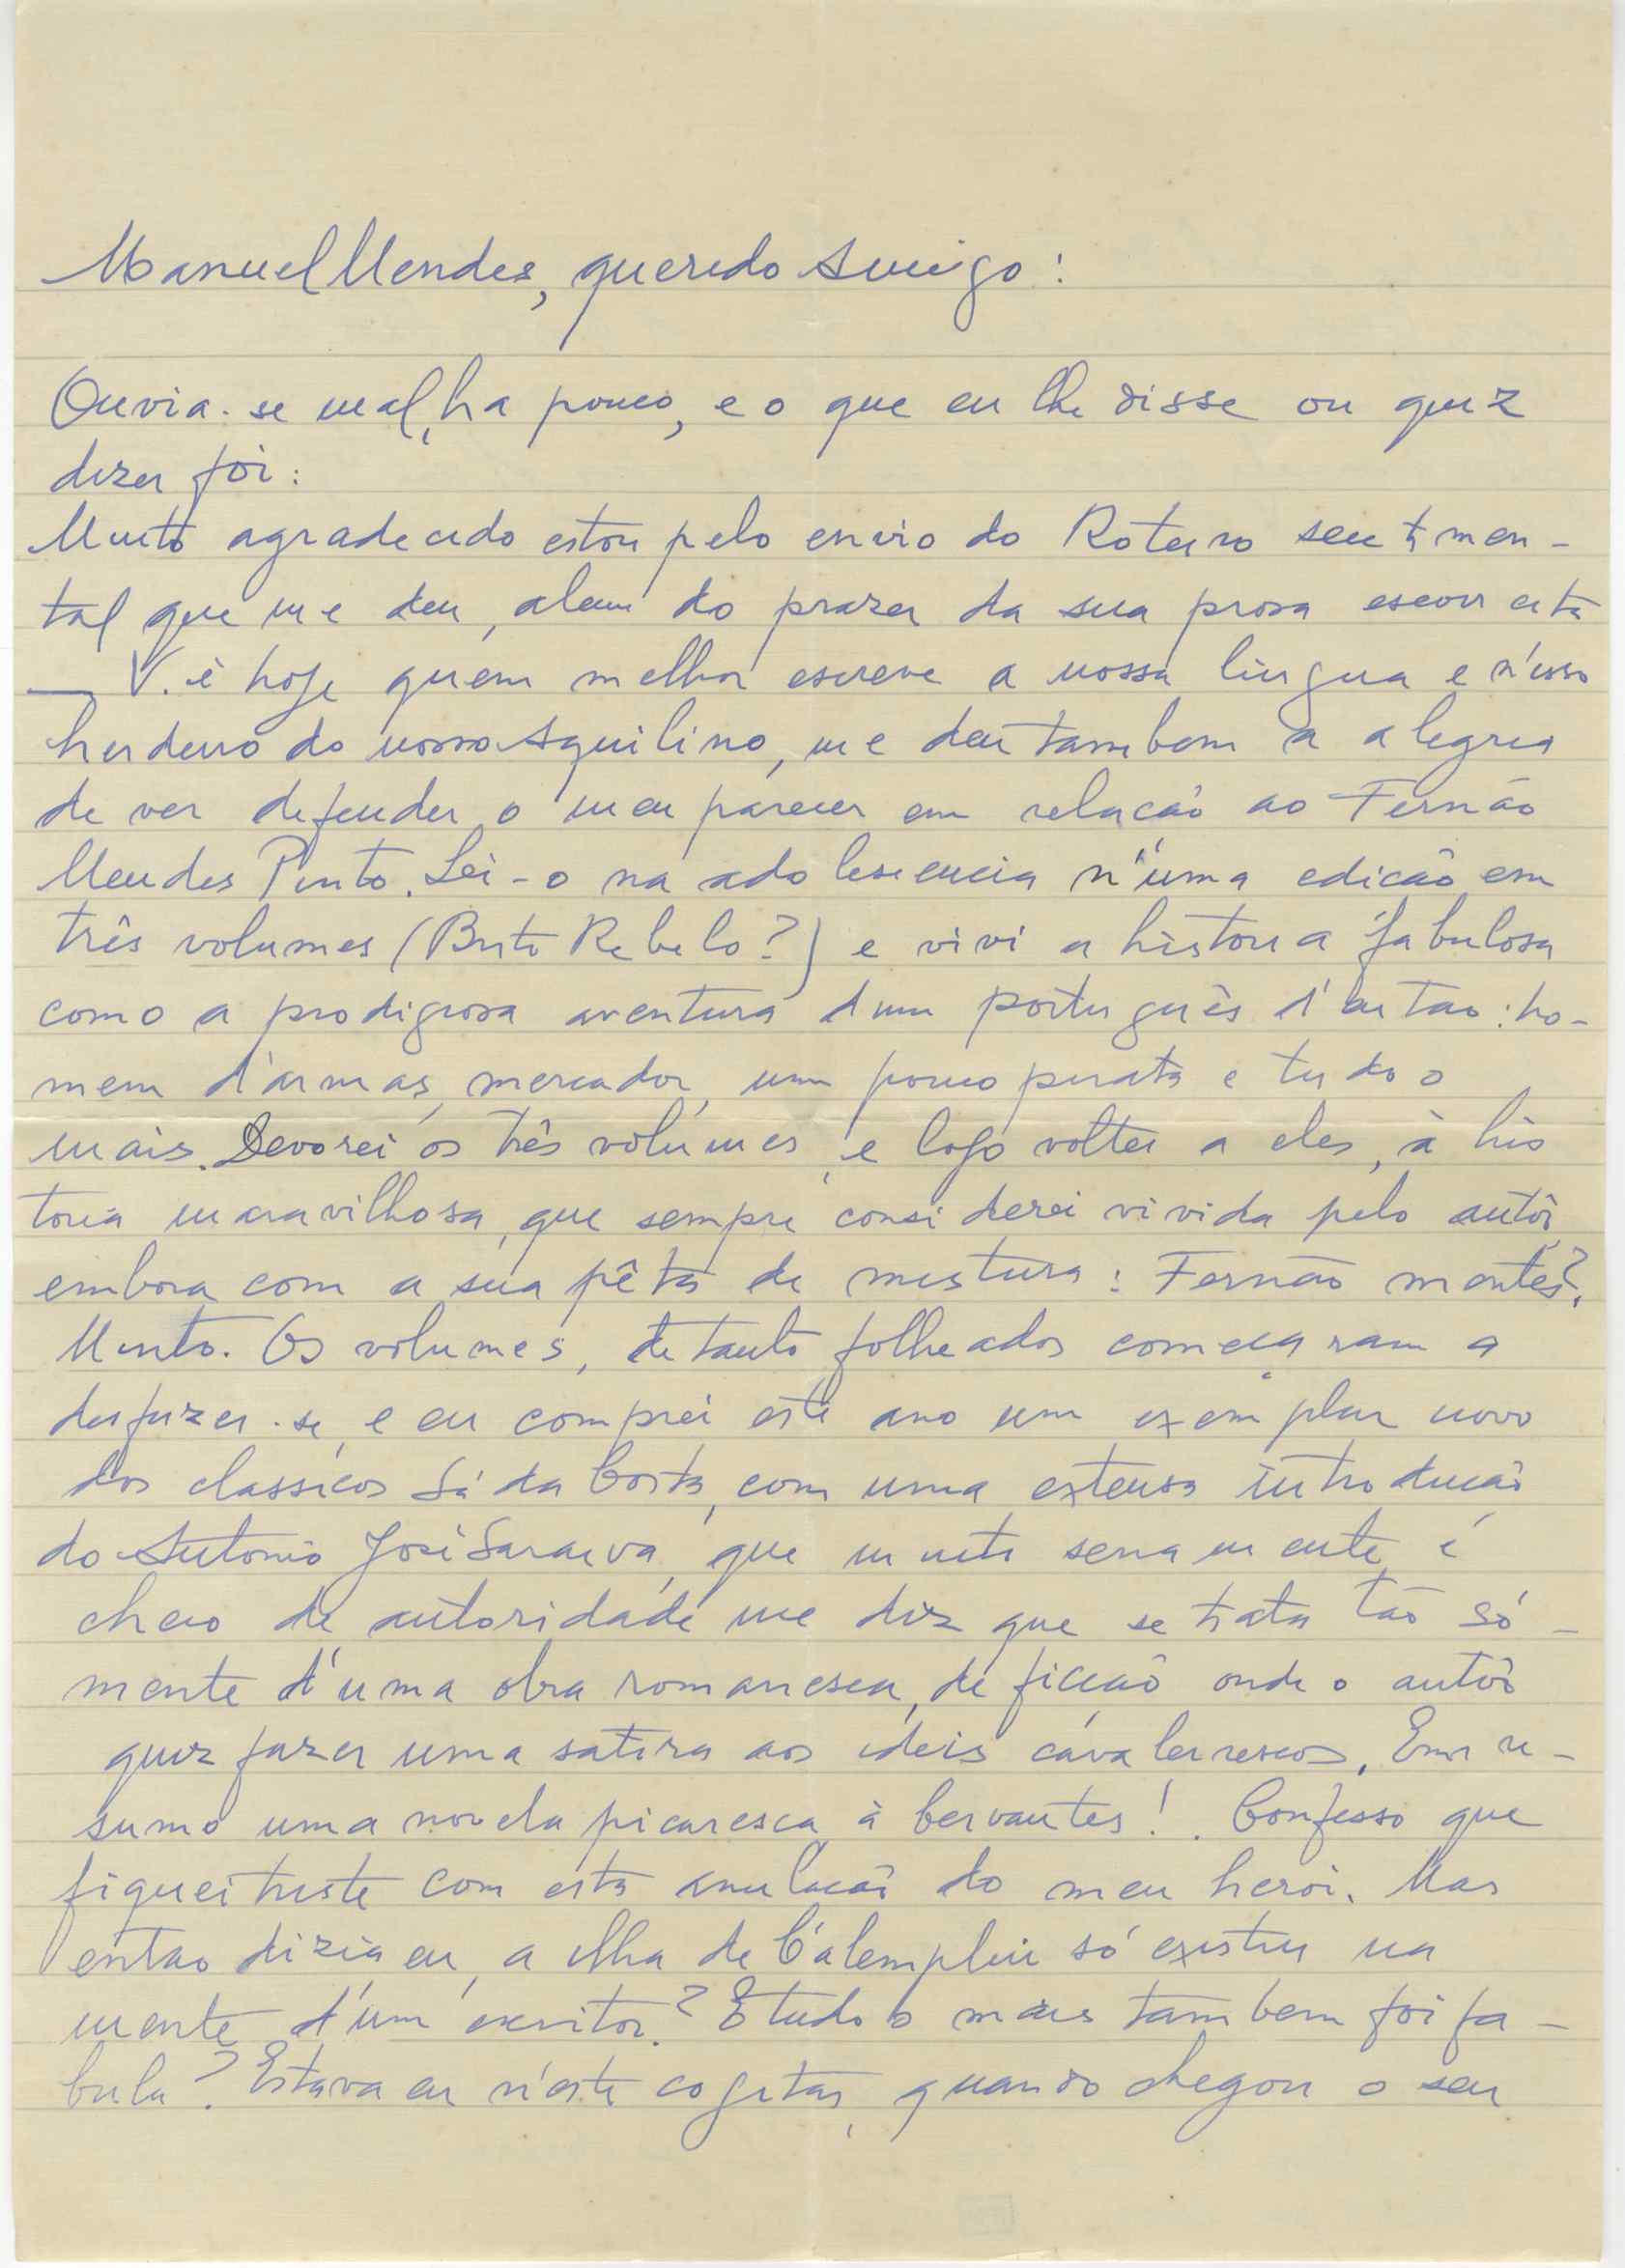 Manuel Mendes, querido Amigo:
Ouvia-se mal, ha pouco, e o que eu lhe disse ou quiz
dizer foi:
Muito agradecido estou pelo envio do Roteiro sentimen-
tal que me deu, alem do prazer da sua prosa escorreita
— V. é hoje quem melhor escreve a nossa lingua e n'isso
herdeiro do nosso Aquilino, me deu tambem a alegria
de ver defender o meu parecer em relacão ao Fernão
Mendes Pinto. Lei-o na adolescencia n'uma edicão em
três volumes (Brito Rebelo?) e vivi a historia fabulosa
como a prodigiosa aventura dum português d'entao: ho-
mem d'armas, mercador, um pouco pirata e tudo o
mais. Devorei os três volumes, e logo voltei a eles, à his
toria maravilhosa, que sempre considerei vivida pelo autôr
embora com a sua pêta de mistura: Fernão mentes?
Minto. Os volumes, de tanto folheados começaram a
desfazer-se, e eu comprei este ano um exemplar novo
dos classicos Sá da Costa, com uma extensa introducão
do Antonio José Saraiva, que muito seriamente e
cheio de autoridade me diz que se trata tão só-
mente d'uma obra romanesca, de ficcão onde o autôr
quiz fazer uma satira aos ideis cavaleirescos. Em re-
sumo uma novela picaresca à Cervantes!. Confesso que
fiquei triste com esta anulacão do meu heroi. Mas
entao dizia eu, a ilha de Calempluí só existiu na
mente d'um escritor? E tudo o mais tambem foi fa-
bula? Estava eu n'este cogitar, quando chegou o seu